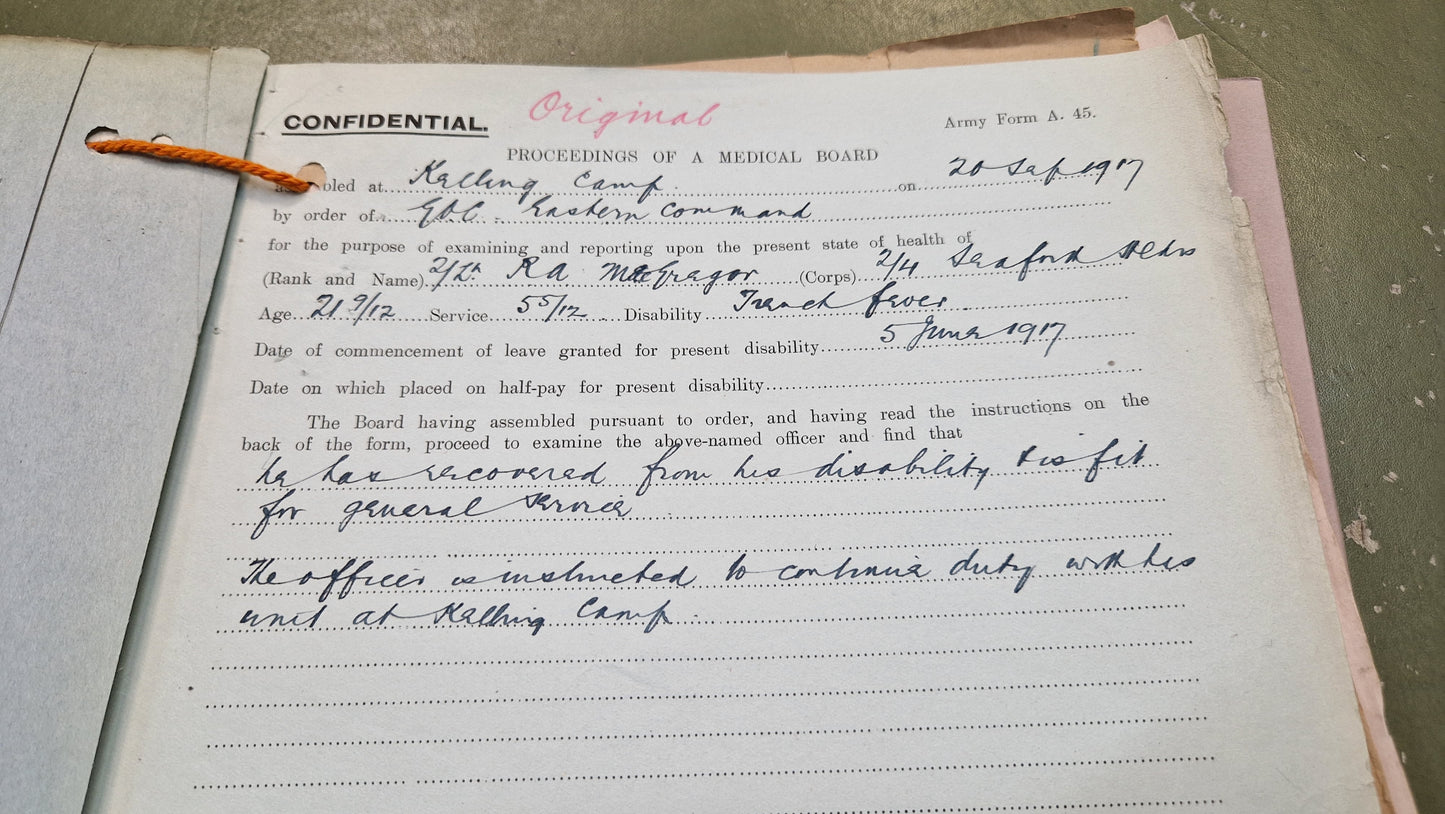 CONFIDENTIAL. Original Army Form A. 45.
PROCEEDINGS OF A MEDICAL BOARD
assembled at Kelling Camp. on 20 Sep 1917
by order of GOC. Eastern Command
for the purpose of examining and reporting upon the present state of health of
(Rank and Name) 2/Lt RA McGregor (Corps) 2/4 Seaford Hldrs
Age 21 9/12 Service 5 5/12 Disability Trench fever.
Date of commencement of leave granted for present disability 5 June 1917
Date on which placed on half-pay for present disability
The Board having assembled pursuant to order, and having read the instructions on the
back of the form, proceed to examine the above-named officer and find that
he has recovered from his disability & is fit
for general service
The officer is instructed to continue duty with his
unit at Kelling Camp.